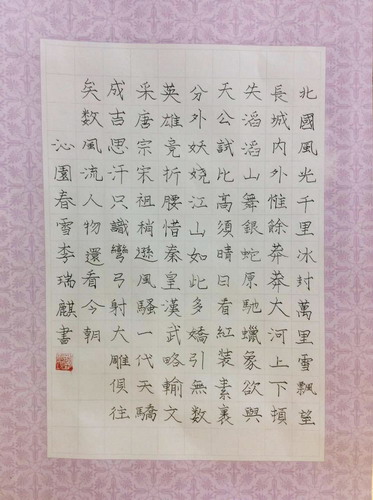 北國風光千里冰封萬里雪飄望
長城內外惟餘莽莽大河上下頓
失滔滔山舞銀蛇原馳蠟象欲與
天公試比高須晴日看紅装素裹
分外妖嬈江山如此多嬌引無數
英雄竞折腰惜秦皇漢武略輸文
采唐宗宋祖稍遜風騷一代天驕
成吉思汗只識彎弓射大雕俱往
矣数風流人物還看今朝
沁園春雪李瑞麒書